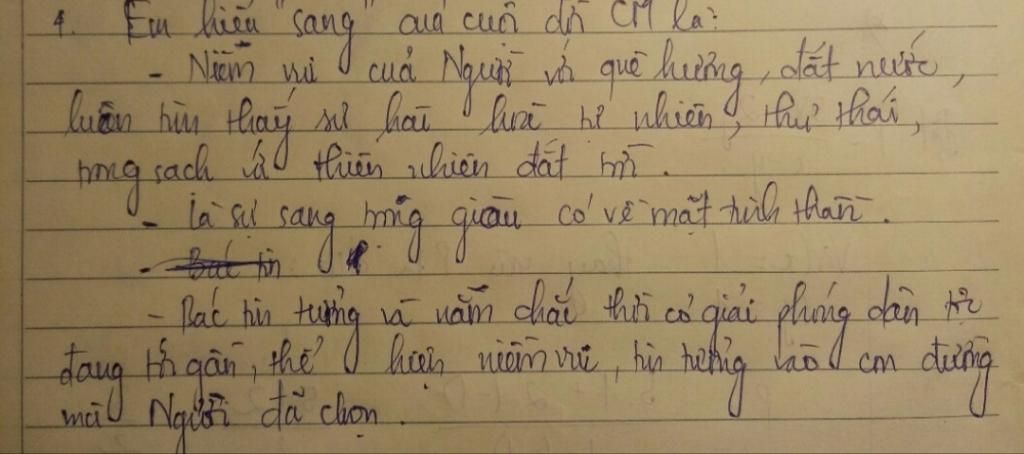 4. Em hiểu "sang" của cuộc đời CM là:
- Niềm vui của Người với quê hương, đất nước,
luôn tìm thấy sự hài hoà tự nhiên, thư thái,
trong sạch và thiên nhiên đất trời.
- Là sự sang trọng giàu có về mặt tinh thần.
- Bác tin
- Bác tin tưởng và nắm chắc thời cơ giải phóng dân tộc
đang tới gần, thể hiện niềm vui, tin tưởng vào con đường
mà Người đã chọn.